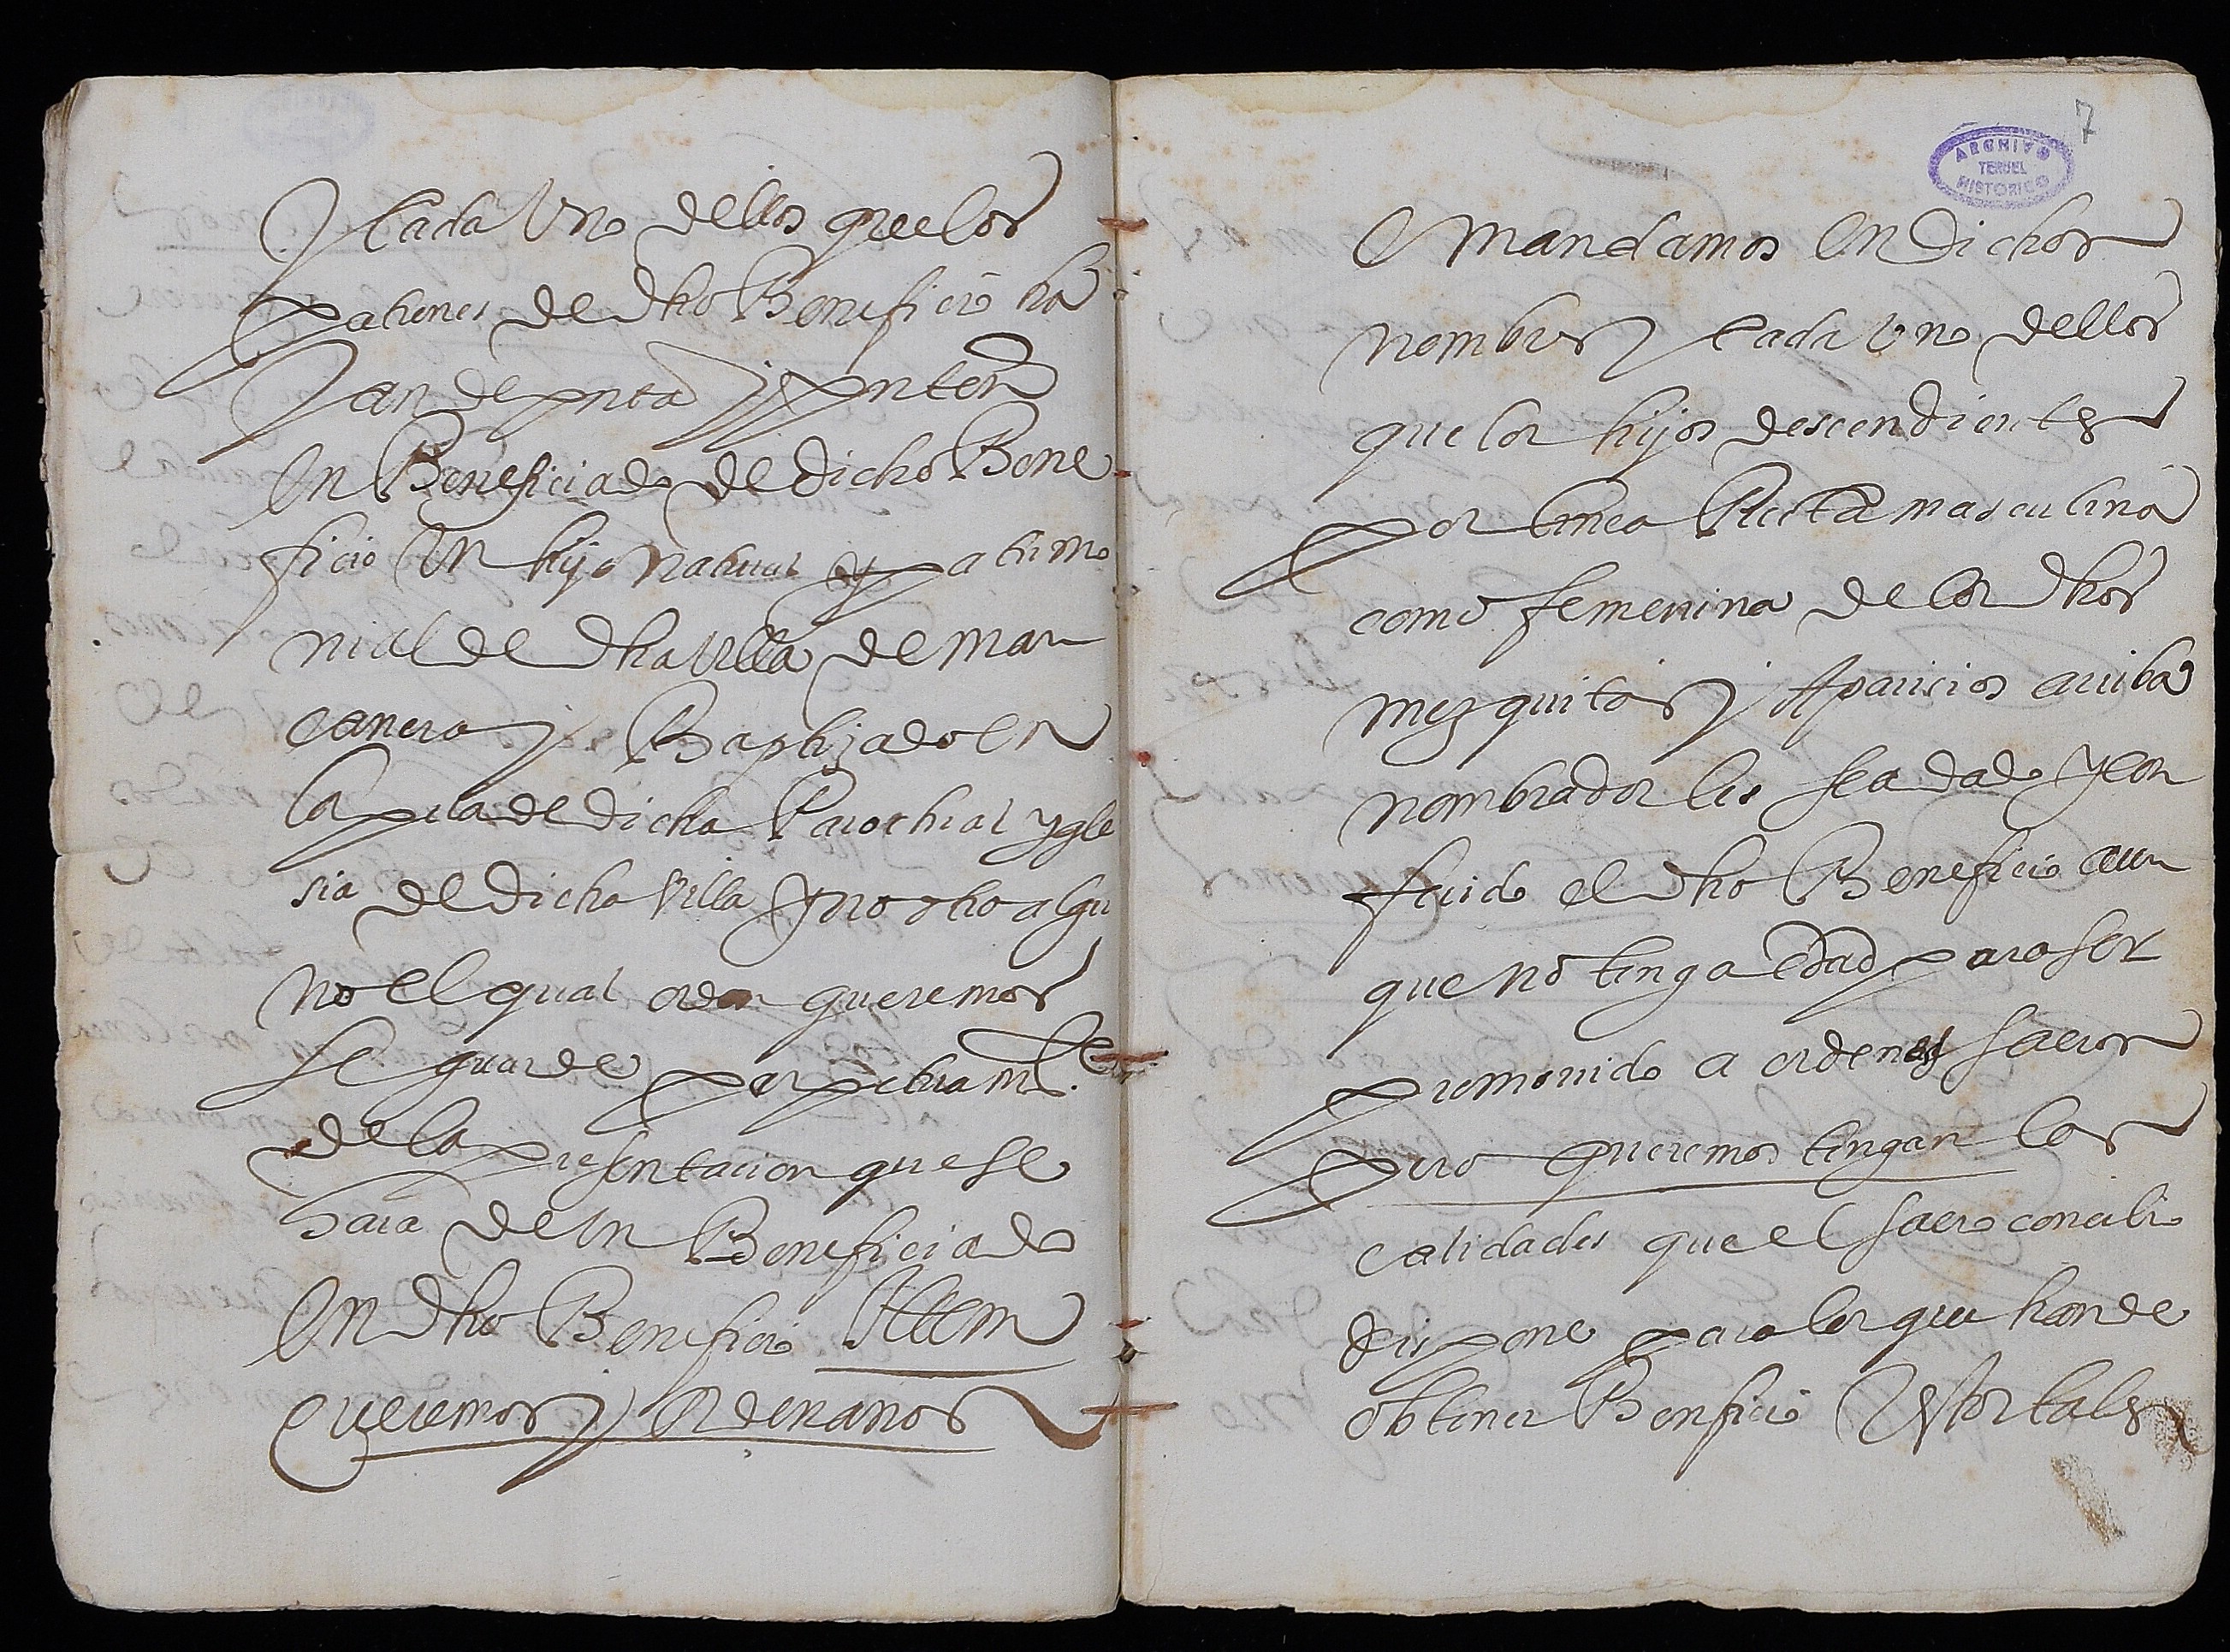 y cada Uno dellos que los
patrones de dho Beneficio ha
yan de pntar y pnten
en Beneficiado de dicho Bene
ficio Un hijo natural y patrimo
nial de dha Villa de man
canera y Baptizado en
la pila de dicha Parochial ygle
sia de dicha Villa y no otro algu
no el qual orden queremos
se guarde perpetuamte
de la presentacion que se
hara de Un Beneficiado
en dho Beneficio Ittem
queremos y ordenamos
7
ARCHIVO
TERUEL
HISTORICO
e mandamos en dichos
nombres y cada Uno dellos
que los hijos descendientes
por linea Recta masculina
como femenina de los dhos
mezquitas y Aparicios arriba
nombrados les sea dado y con
ferido el dho Beneficio aun
que no tenga edad para ser
promovido a ordenes sacros
pero queremos tengan las
calidades que el sacro concilio
dispone para los que han de
obtener Benficio y estos tales